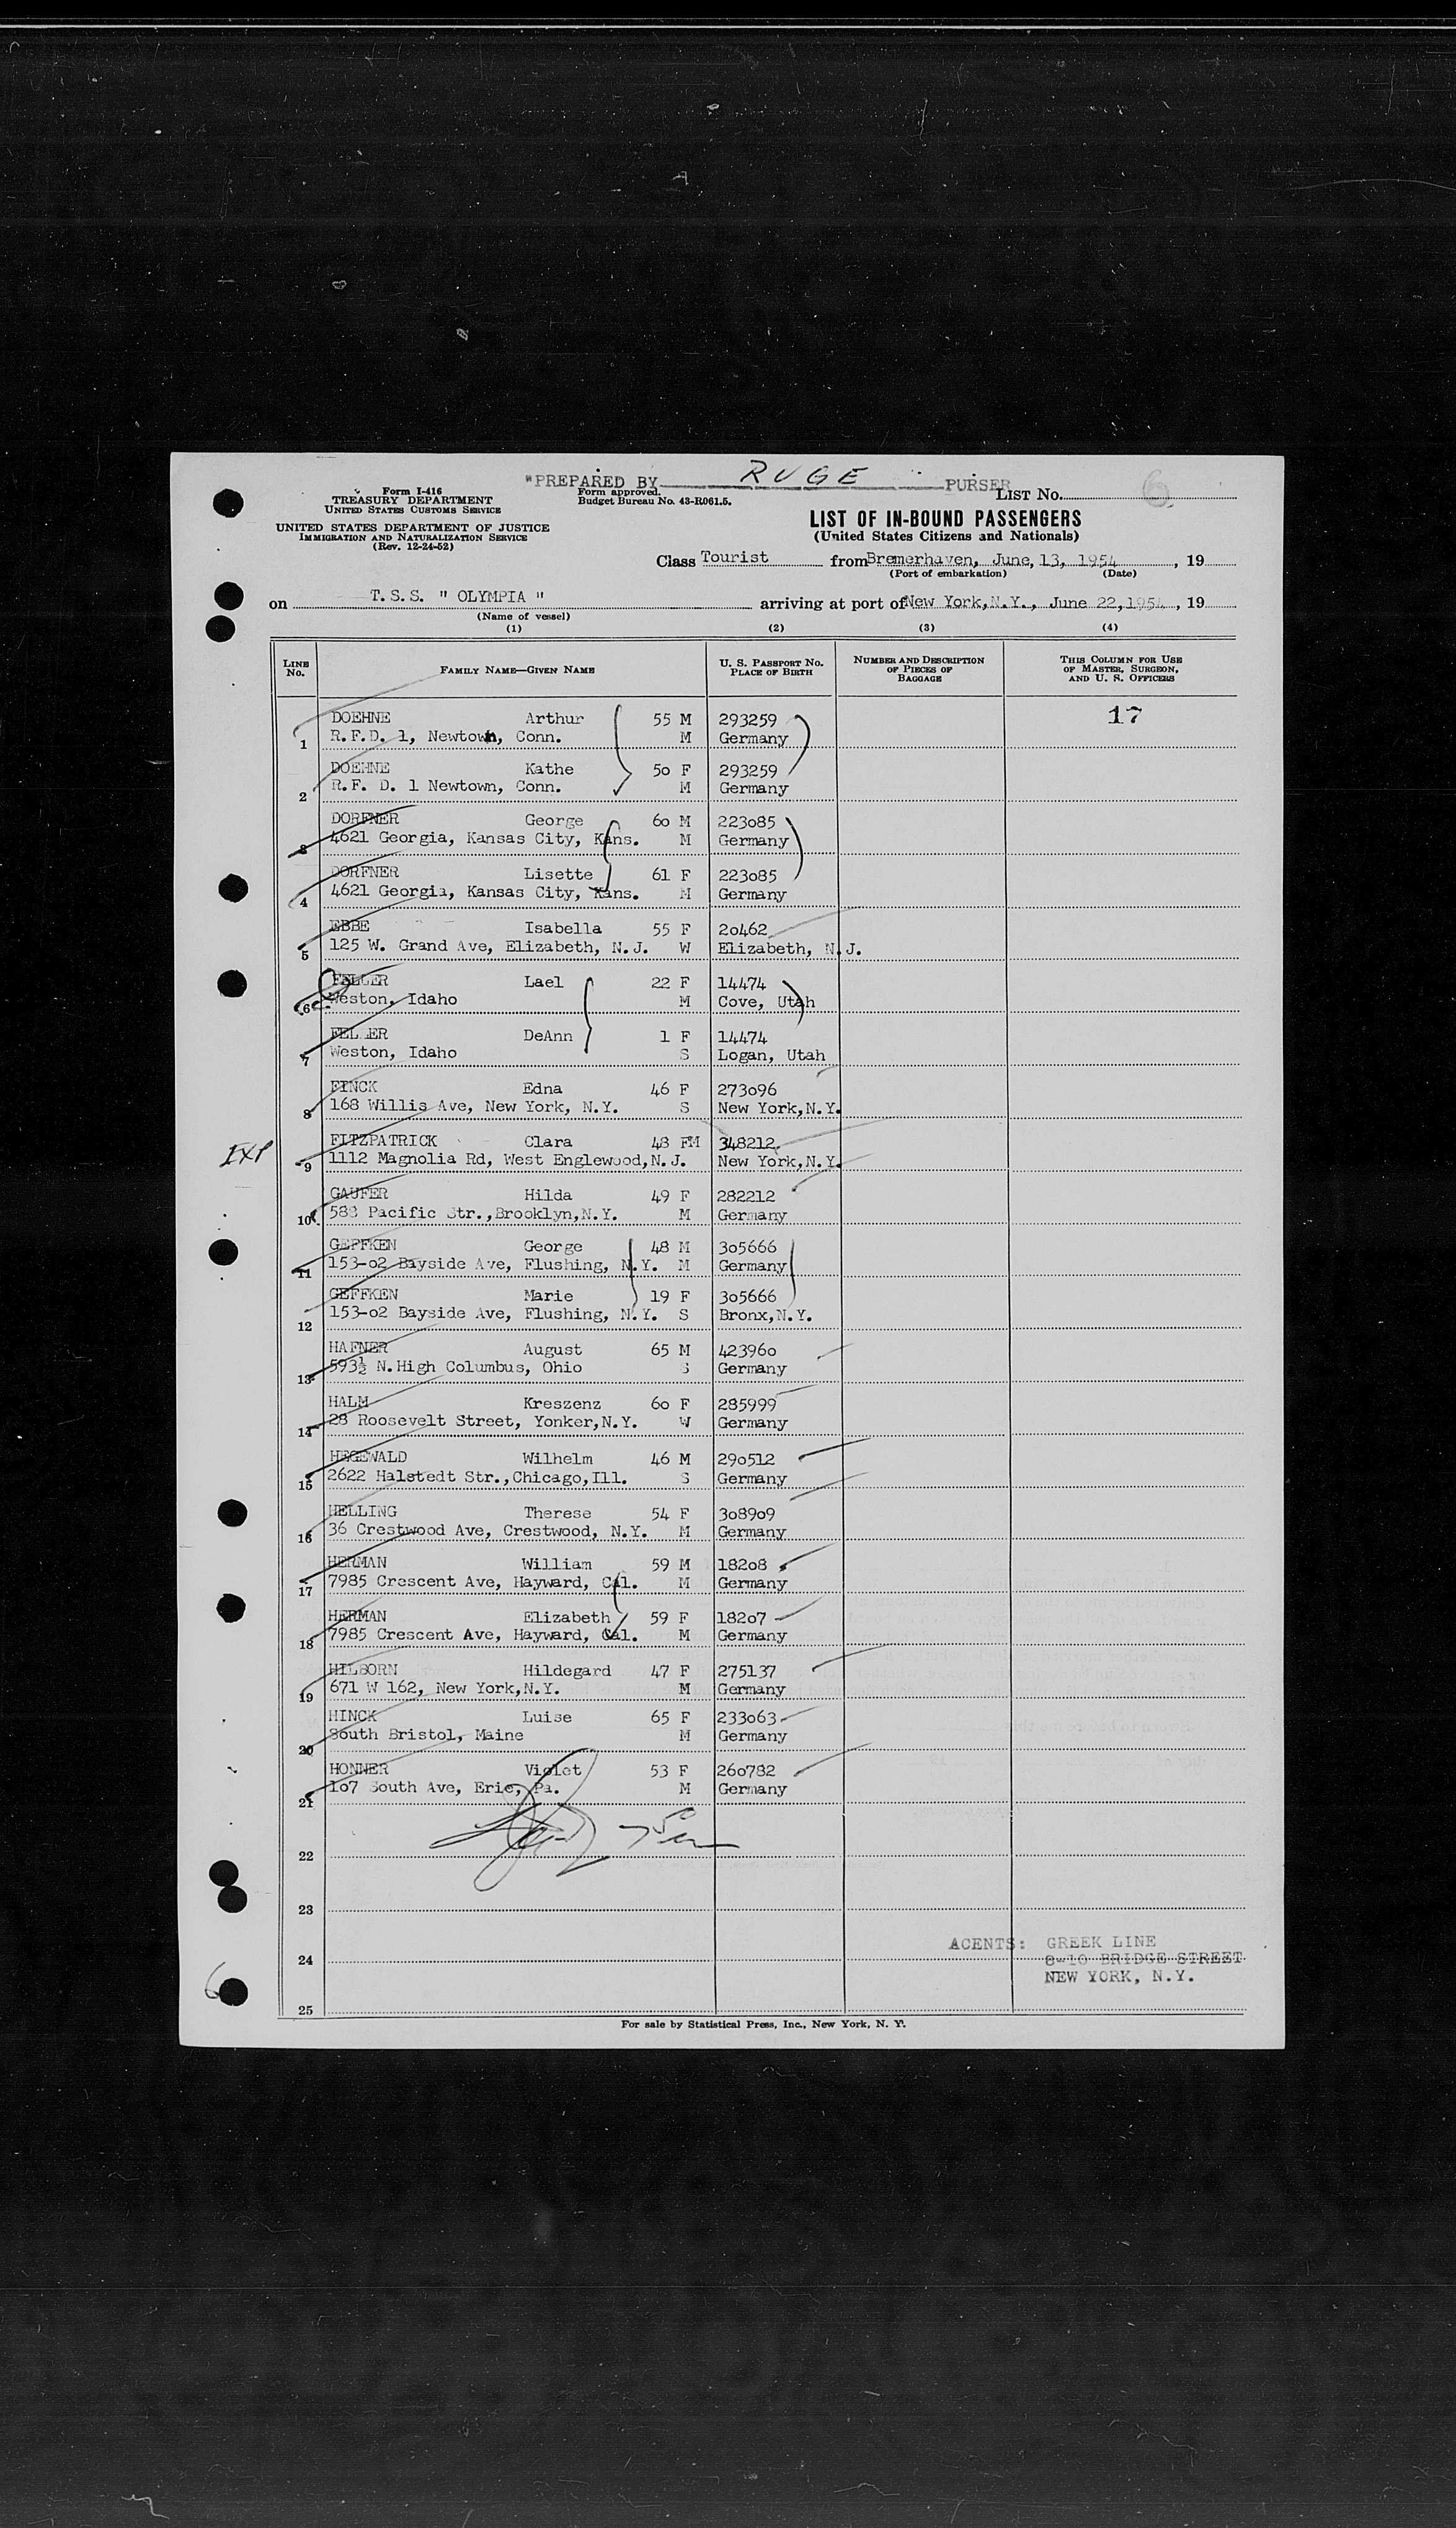 "PREPARED BY RUGE PURSER
Form I-416
TREASURY DEPARTMENT
UNITED STATES CUSTOMS SERVICE
Form approved.
Budget Bureau No. 43-R061.5.
LIST NO. 6
UNITED STATES DEPARTMENT OF JUSTICE
IMMIGRATION AND NATURALIZATION SERVICE
(Rev. 12-24-52)
LIST OF IN-BOUND PASSENGERS
(United States Citizens and Nationals)
Class Tourist from Bremerhaven, June, 13, 1954, 19
(Port of embarkation) (Date)
on T.S.S. " OLYMPIA " arriving at port of New York, N.Y., June 22, 1954, 19
(Name of vessel)
(1) (2) (3) (4)
LINE NO. FAMILY NAME—GIVEN NAME U. S. PASSPORT NO. PLACE OF BIRTH NUMBER AND DESCRIPTION OF PIECES OF BAGGAGE THIS COLUMN FOR USE OF MASTER, SURGEON, AND U. S. OFFICERS
DOEHNE Arthur 55 M 293259 17
1 R.F.D. 1, Newtown, Conn. M Germany
DOEHNE Kathe 50 F 293259
2 R.F. D. 1 Newtown, Conn. M Germany
DORFNER George 60 M 223085
3 4621 Georgia, Kansas City, Kans. M Germany
DORFNER Lisette 61 F 223085
4 4621 Georgia, Kansas City, Kans. M Germany
EBBE Isabella 55 F 20462
5 125 W. Grand Ave, Elizabeth, N.J. W Elizabeth, N.J.
FELLER Lael 22 F 14474
6 Weston, Idaho M Cove, Utah
FELLER DeAnn 1 F 14474
7 Weston, Idaho S Logan, Utah
FINCK Edna 46 F 273096
8 168 Willis Ave, New York, N.Y. S New York, N.Y.
FITZPATRICK Clara 48 FM 348212
9 1112 Magnolia Rd, West Englewood, N.J. New York, N.Y.
GAUFER Hilda 49 F 282212
10 588 Pacific Str., Brooklyn, N.Y. M Germany
GEFFKEN George 48 M 305666
11 153-02 Bayside Ave, Flushing, N.Y. M Germany
GEFFKEN Marie 19 F 305666
12 153-02 Bayside Ave, Flushing, N.Y. S Bronx, N.Y.
HAFNER August 65 M 423960
13 593½ N. High Columbus, Ohio S Germany
HALM Kreszenz 60 F 285999
14 28 Roosevelt Street, Yonker, N.Y. W Germany
HEGEWALD Wilhelm 46 M 290512
15 2622 Halstedt Str., Chicago, Ill. S Germany
HELLING Therese 54 F 308909
16 36 Crestwood Ave, Crestwood, N.Y. M Germany
HERMAN William 59 M 18208
17 7985 Crescent Ave, Hayward, Cal. M Germany
HERMAN Elizabeth 59 F 18207
18 7985 Crescent Ave, Hayward, Cal. M Germany
HILBORN Hildegard 47 F 275137
19 671 W 162, New York, N.Y. M Germany
HINCK Luise 65 F 233063
20 South Bristol, Maine M Germany
HONNER Violet 53 F 260782
21 107 South Ave, Erie, Pa. M Germany
22
23
ACENTS: GREEK LINE
24 8-10 BRIDGE STREET
NEW YORK, N.Y.
25
For sale by Statistical Press, Inc., New York, N. Y.
6